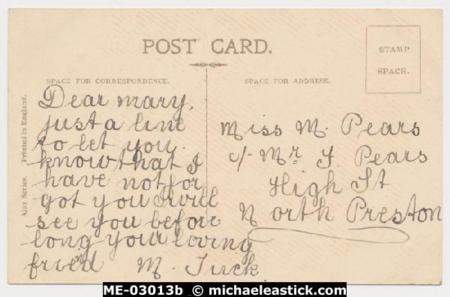 POST CARD.
SPACE FOR CORRESPONDENCE.
SPACE FOR ADDRESS.
STAMP
SPACE.
Ajax Series. Printed in England.
Dear mary,
just a line
to let you
know that I
have not for
got you I will
see you before
long your loving
friend M. Tuck
Miss M. Pears
c/- Mr J. Pears
High St
North Preston
ME-03013b © michaeleastick.com